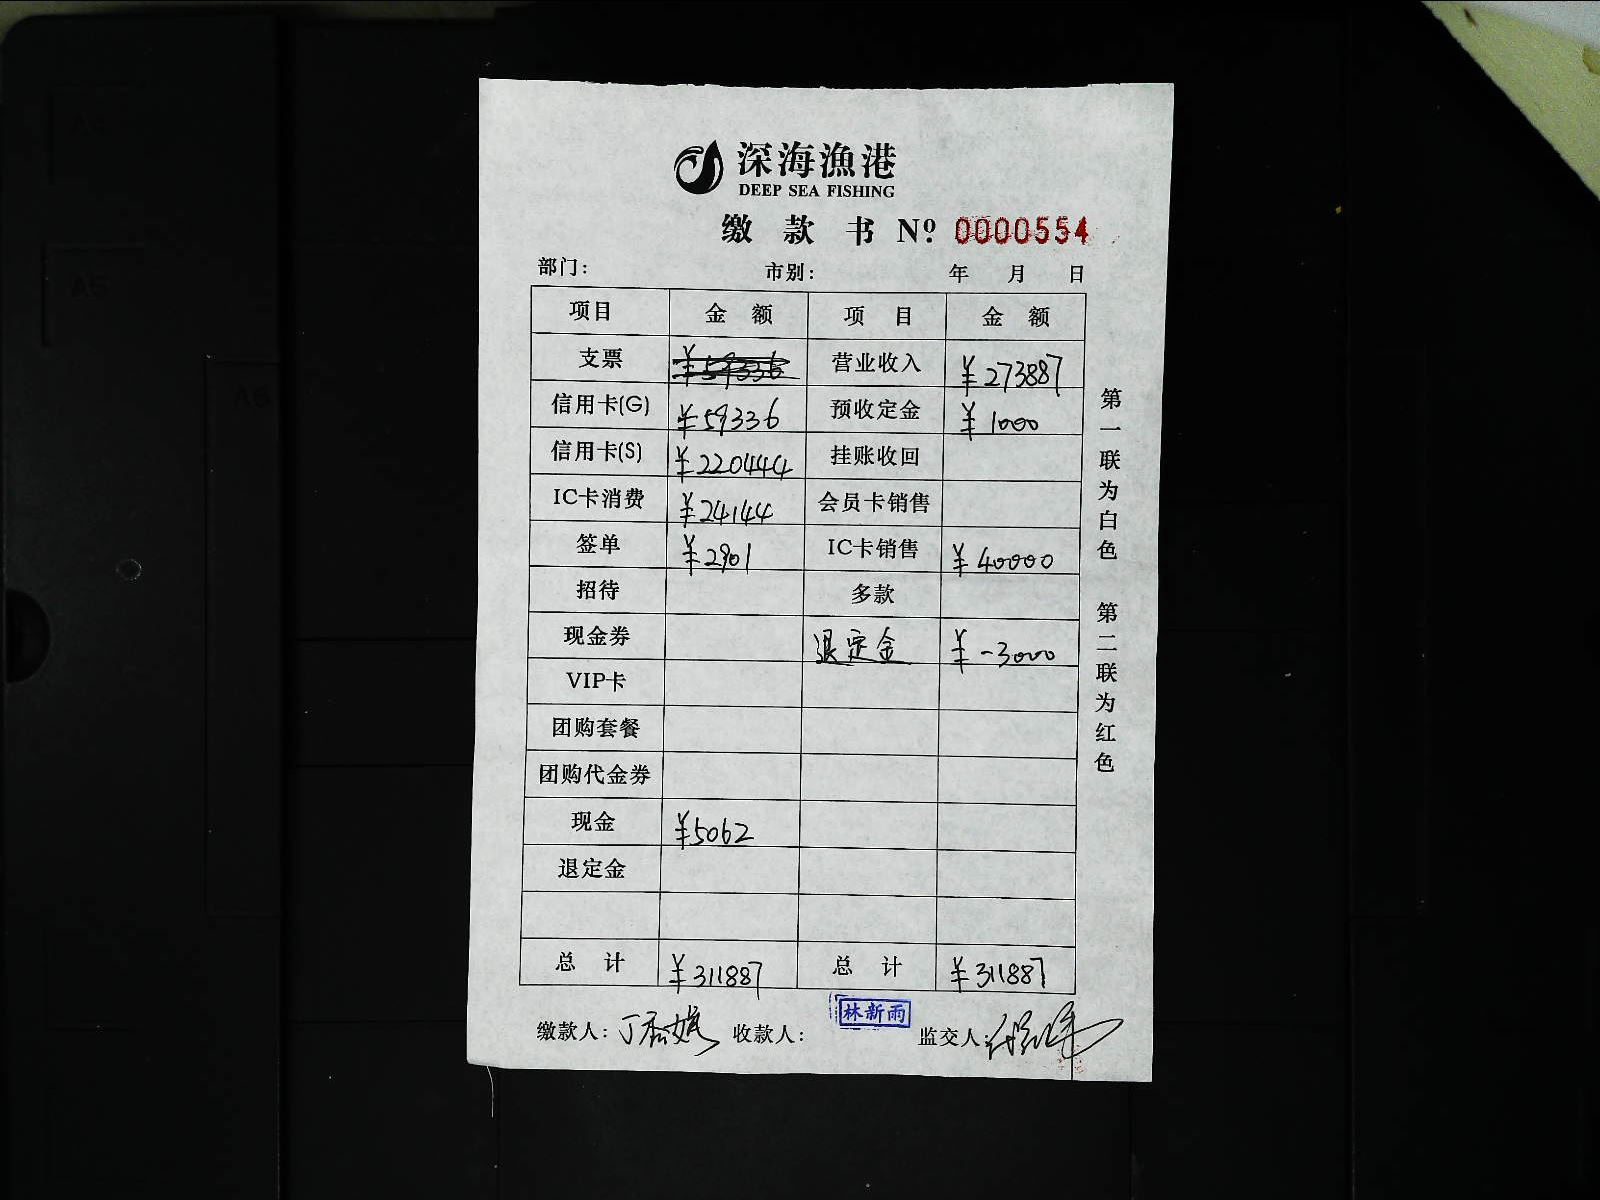 深海漁港
DEEP SEA FISHING
缴款书 Nº 0000554
部门： 市别： 年 月 日
项目 金额 项目 金额
支票 ¥59336 营业收入 ¥273887
信用卡(G) ¥59336 预收定金 ¥1000
信用卡(S) ¥220444 挂账收回
IC卡消费 ¥24144 会员卡销售
签单 ¥2901 IC卡销售 ¥40000
招待 多款
现金券 退定金 ¥-3000
VIP卡
团购套餐
团购代金券
现金 ¥5062
退定金
总计 ¥311887 总计 ¥311887
缴款人： 收款人： 林新雨 监交人
第一联为白色 第二联为红色